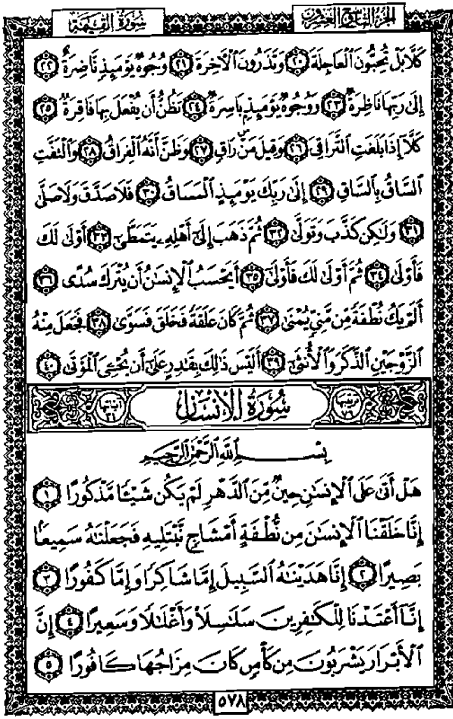 سُورَةُ القِيَامَةِ الجُزْءُ التَّاسِعُ وَالعِشْرُونَ
كَلَّا بَلْ تُحِبُّونَ ٱلْعَاجِلَةَ ٢٠ وَتَذَرُونَ ٱلْآخِرَةَ ٢١ وُجُوهٌ يَوْمَئِذٍ نَّاضِرَةٌ ٢٢
إِلَىٰ رَبِّهَا نَاظِرَةٌ ٢٣ وَوُجُوهٌ يَوْمَئِذٍ بَاسِرَةٌ ٢٤ تَظُنُّ أَن يُفْعَلَ بِهَا فَاقِرَةٌ ٢٥
كَلَّآ إِذَا بَلَغَتِ ٱلتَّرَاقِيَ ٢٦ وَقِيلَ مَنْ رَاقٍ ٢٧ وَظَنَّ أَنَّهُ ٱلْفِرَاقُ ٢٨ وَٱلْتَفَّتِ
ٱلسَّاقُ بِٱلسَّاقِ ٢٩ إِلَىٰ رَبِّكَ يَوْمَئِذٍ ٱلْمَسَاقُ ٣٠ فَلَا صَدَّقَ وَلَا صَلَّىٰ
٣١ وَلَٰكِن كَذَّبَ وَتَوَلَّىٰ ٣٢ ثُمَّ ذَهَبَ إِلَىٰٓ أَهْلِهِۦ يَتَمَطَّىٰٓ ٣٣ أَوْلَىٰ لَكَ
فَأَوْلَىٰ ٣٤ ثُمَّ أَوْلَىٰ لَكَ فَأَوْلَىٰٓ ٣٥ أَيَحْسَبُ ٱلْإِنسَٰنُ أَن يُتْرَكَ سُدًى ٣٦
أَلَمْ يَكُ نُطْفَةً مِّن مَّنِىٍّ يُمْنَىٰ ٣٧ ثُمَّ كَانَ عَلَقَةً فَخَلَقَ فَسَوَّىٰ ٣٨ فَجَعَلَ مِنْهُ
ٱلزَّوْجَيْنِ ٱلذَّكَرَ وَٱلْأُنثَىٰٓ ٣٩ أَلَيْسَ ذَٰلِكَ بِقَٰدِرٍ عَلَىٰٓ أَن يُحْـِۧىَ ٱلْمَوْتَىٰ ٤٠
سُورَةُ الإِنسَانِ
بِسْمِ ٱللَّهِ ٱلرَّحْمَٰنِ ٱلرَّحِيمِ
هَلْ أَتَىٰ عَلَى ٱلْإِنسَٰنِ حِينٌ مِّنَ ٱلدَّهْرِ لَمْ يَكُن شَيْـًٔا مَّذْكُورًا ١
إِنَّا خَلَقْنَا ٱلْإِنسَٰنَ مِن نُّطْفَةٍ أَمْشَاجٍ نَّبْتَلِيهِ فَجَعَلْنَٰهُ سَمِيعًۢا
بَصِيرًا ٢ إِنَّا هَدَيْنَٰهُ ٱلسَّبِيلَ إِمَّا شَاكِرًا وَإِمَّا كَفُورًا ٣
إِنَّآ أَعْتَدْنَا لِلْكَٰفِرِينَ سَلَٰسِلَا۟ وَأَغْلَٰلًا وَسَعِيرًا ٤ إِنَّ
ٱلْأَبْرَارَ يَشْرَبُونَ مِن كَأْسٍ كَانَ مِزَاجُهَا كَافُورًا ٥
٥٧٨